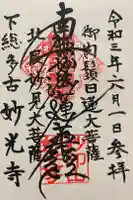 令和三年六月一日参拝
御肉日蓮大菩薩
南無妙法蓮華経
北辰妙見大菩薩
下総多古妙光寺